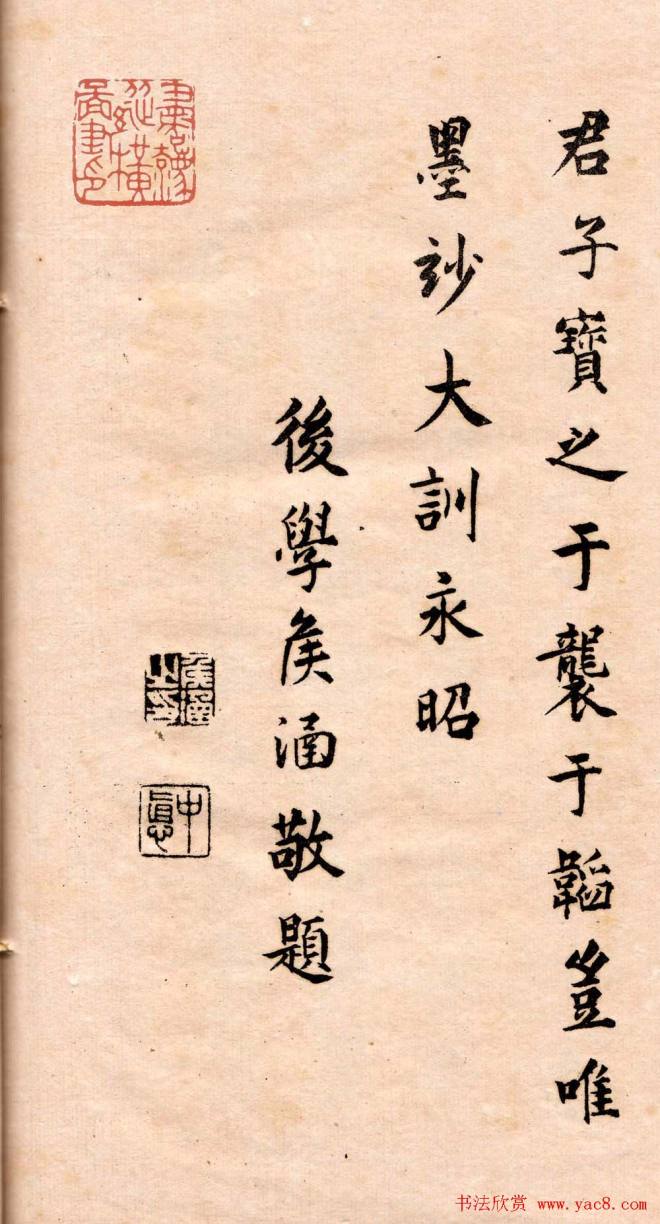 君子寶之于襲于韜豈唯
墨玅大訓永昭
後學矦涵敬題
书法欣赏 www.yac8.com